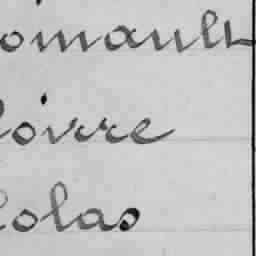 omault
oivre
olas